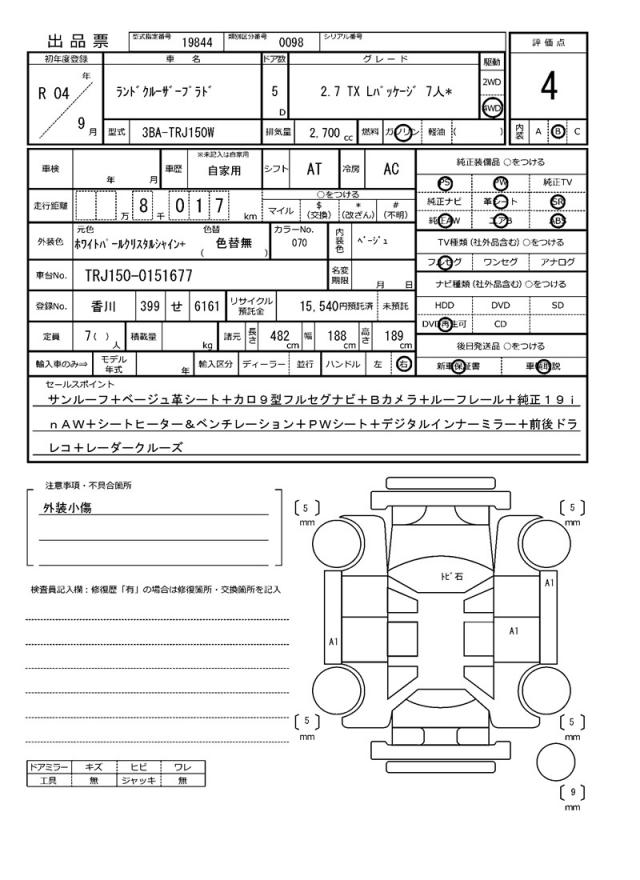 出品票
型式指定番号 19844 類別区分番号 0098 シリアル番号
評価点
4
初年度登録 車名 ドア数 グレード 駆動
R 04 年 9 月
ﾗﾝﾄﾞｸﾙｰｻﾞｰﾌﾟﾗﾄﾞ 5 D 2.7 TX Lﾊﾟｯｹｰｼﾞ 7人*
2WD
4WD
型式 3BA-TRJ150W 排気量 2,700 cc 燃料 ガソリン 軽油 ( )
内装 A B C
車検 年 月 車歴 ※未記入は自家用 自家用 シフト AT 冷房 AC
純正装備品 ○をつける
PS PW 純正TV
純正ナビ 革シート SR
純正AW エアB ABS
走行距離 万 8 千 0 1 7 km
○をつける
マイル $(交換) *(改ざん) #(不明)
外装色 元色 ﾎﾜｲﾄﾊﾟｰﾙｸﾘｽﾀﾙｼｬｲﾝ+ 色替 ( 色替無 ) カラーNo. 070 内装色 ﾍﾞｰｼﾞｭ
TV種類(社外品含む) ○をつける
フルセグ ワンセグ アナログ
車台No. TRJ150-0151677 名変期限 月 日
ナビ種類(社外品含む) ○をつける
HDD DVD SD
DVD再生可 CD
登録No. 香川 399 せ 6161 リサイクル預託金 15,540円預託済 未預託
定員 7( ) 人 積載量 kg 諸元 長さ 482 cm 幅 188 cm 高さ 189 cm
後日発送品 ○をつける
新車保証書 車輌取説
輸入車のみ⇒ モデル年式 年 輸入区分 ディーラー 並行 ハンドル 左 右
セールスポイント
サンルーフ＋ベージュ革シート＋カロ９型フルセグナビ＋Ｂカメラ＋ルーフレール＋純正１９ｉ
ｎＡＷ＋シートヒーター＆ベンチレーション＋ＰＷシート＋デジタルインナーミラー＋前後ドラ
レコ＋レーダークルーズ
注意事項・不具合箇所
外装小傷
検査員記入欄：修復歴「有」の場合は修復箇所・交換箇所を記入
〔 5 〕
mm
〔 5 〕
mm
ﾄﾋﾞ石
A1
A1
A1
〔 5 〕
mm
〔 5 〕
mm
〔 9 〕
mm
ドアミラー キズ ヒビ ワレ
工具 無 ジャッキ 無